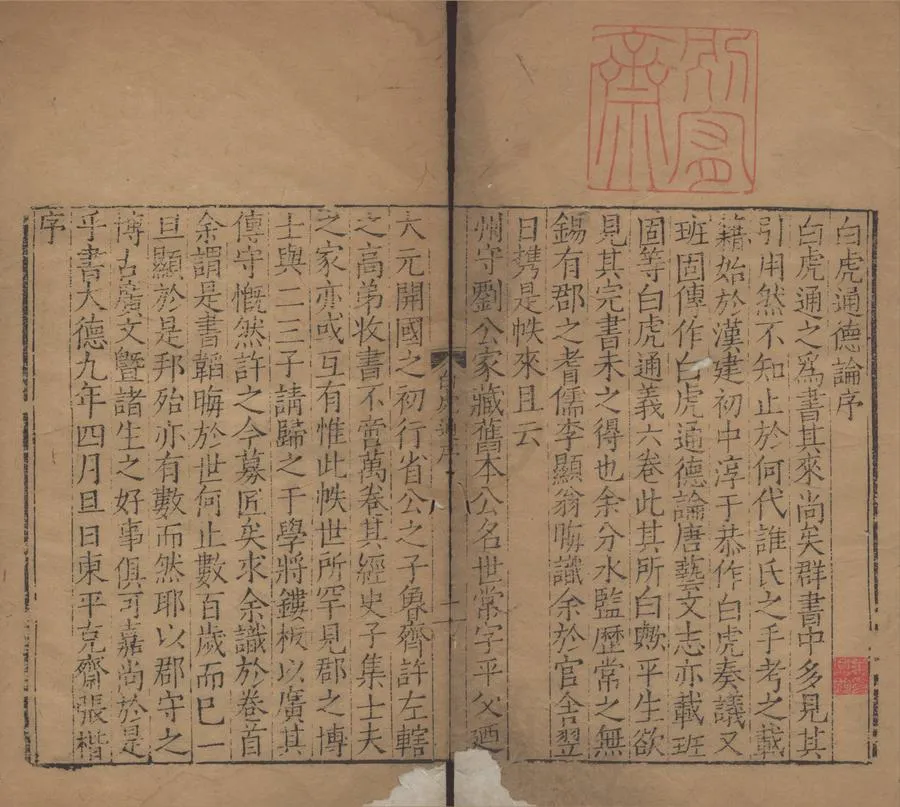 白虎通德論序
白虎通之爲書其來尚矣群書中多見其
引用然不知止於何代誰氏之手考之載
籍始於漢建初中淳于恭作白虎奏議又
班固傳作白虎通德論唐藝文志亦載班
固等白虎通義六卷此其所自歟平生欲
見其完書未之得也余分水監歷常之無
錫有郡之耆儒李顯翁晦識余於官舍翌
日携是帙來且云
州守劉公家藏舊本公名世常字平父廼
白虎通序
二
大元開國之初行省公之子魯齋許左轄
之高弟收書不啻萬卷其經史子集士夫
之家亦或互有惟此帙世所罕見郡之博
士與二三子請歸之于學將鏤板以廣其
傳守慨然許之今募匠矣求余識於卷首
余謂是書韜晦於世何止數百歲而已一
旦顯於是邦殆亦有數而然耶以郡守之
博古廣文暨諸生之好事俱可嘉尚於是
乎書大德九年四月旦日東平克齋張楷
序